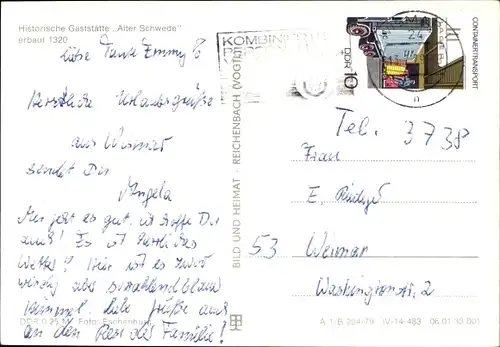 Historische Gaststätte „Alter Schwede"
erbaut 1320
Liebe Tante Emmy!
Herzliche Urlaubsgrüße
aus Wismar
sendet Dir
Angela
Mir geht es gut, ich hoffe Dir
auch! Es ist herrliches
Wetter! Hier ist es zwar
windig aber strahlend blauer
Himmel. Liebe Grüße auch
an den Rest der Familie!
DDR 0,25 M Foto: Eschenburg
BILD UND HEIMAT · REICHENBACH (VOGTL)
KOMBINIER
CONTAINERTRANSPORT
DDR 10
Tel. 3738
Frau
E.
53 Weimar
Washingtonstr. 2
A 1/B 284/79 IV-14-483 06 01 13 001